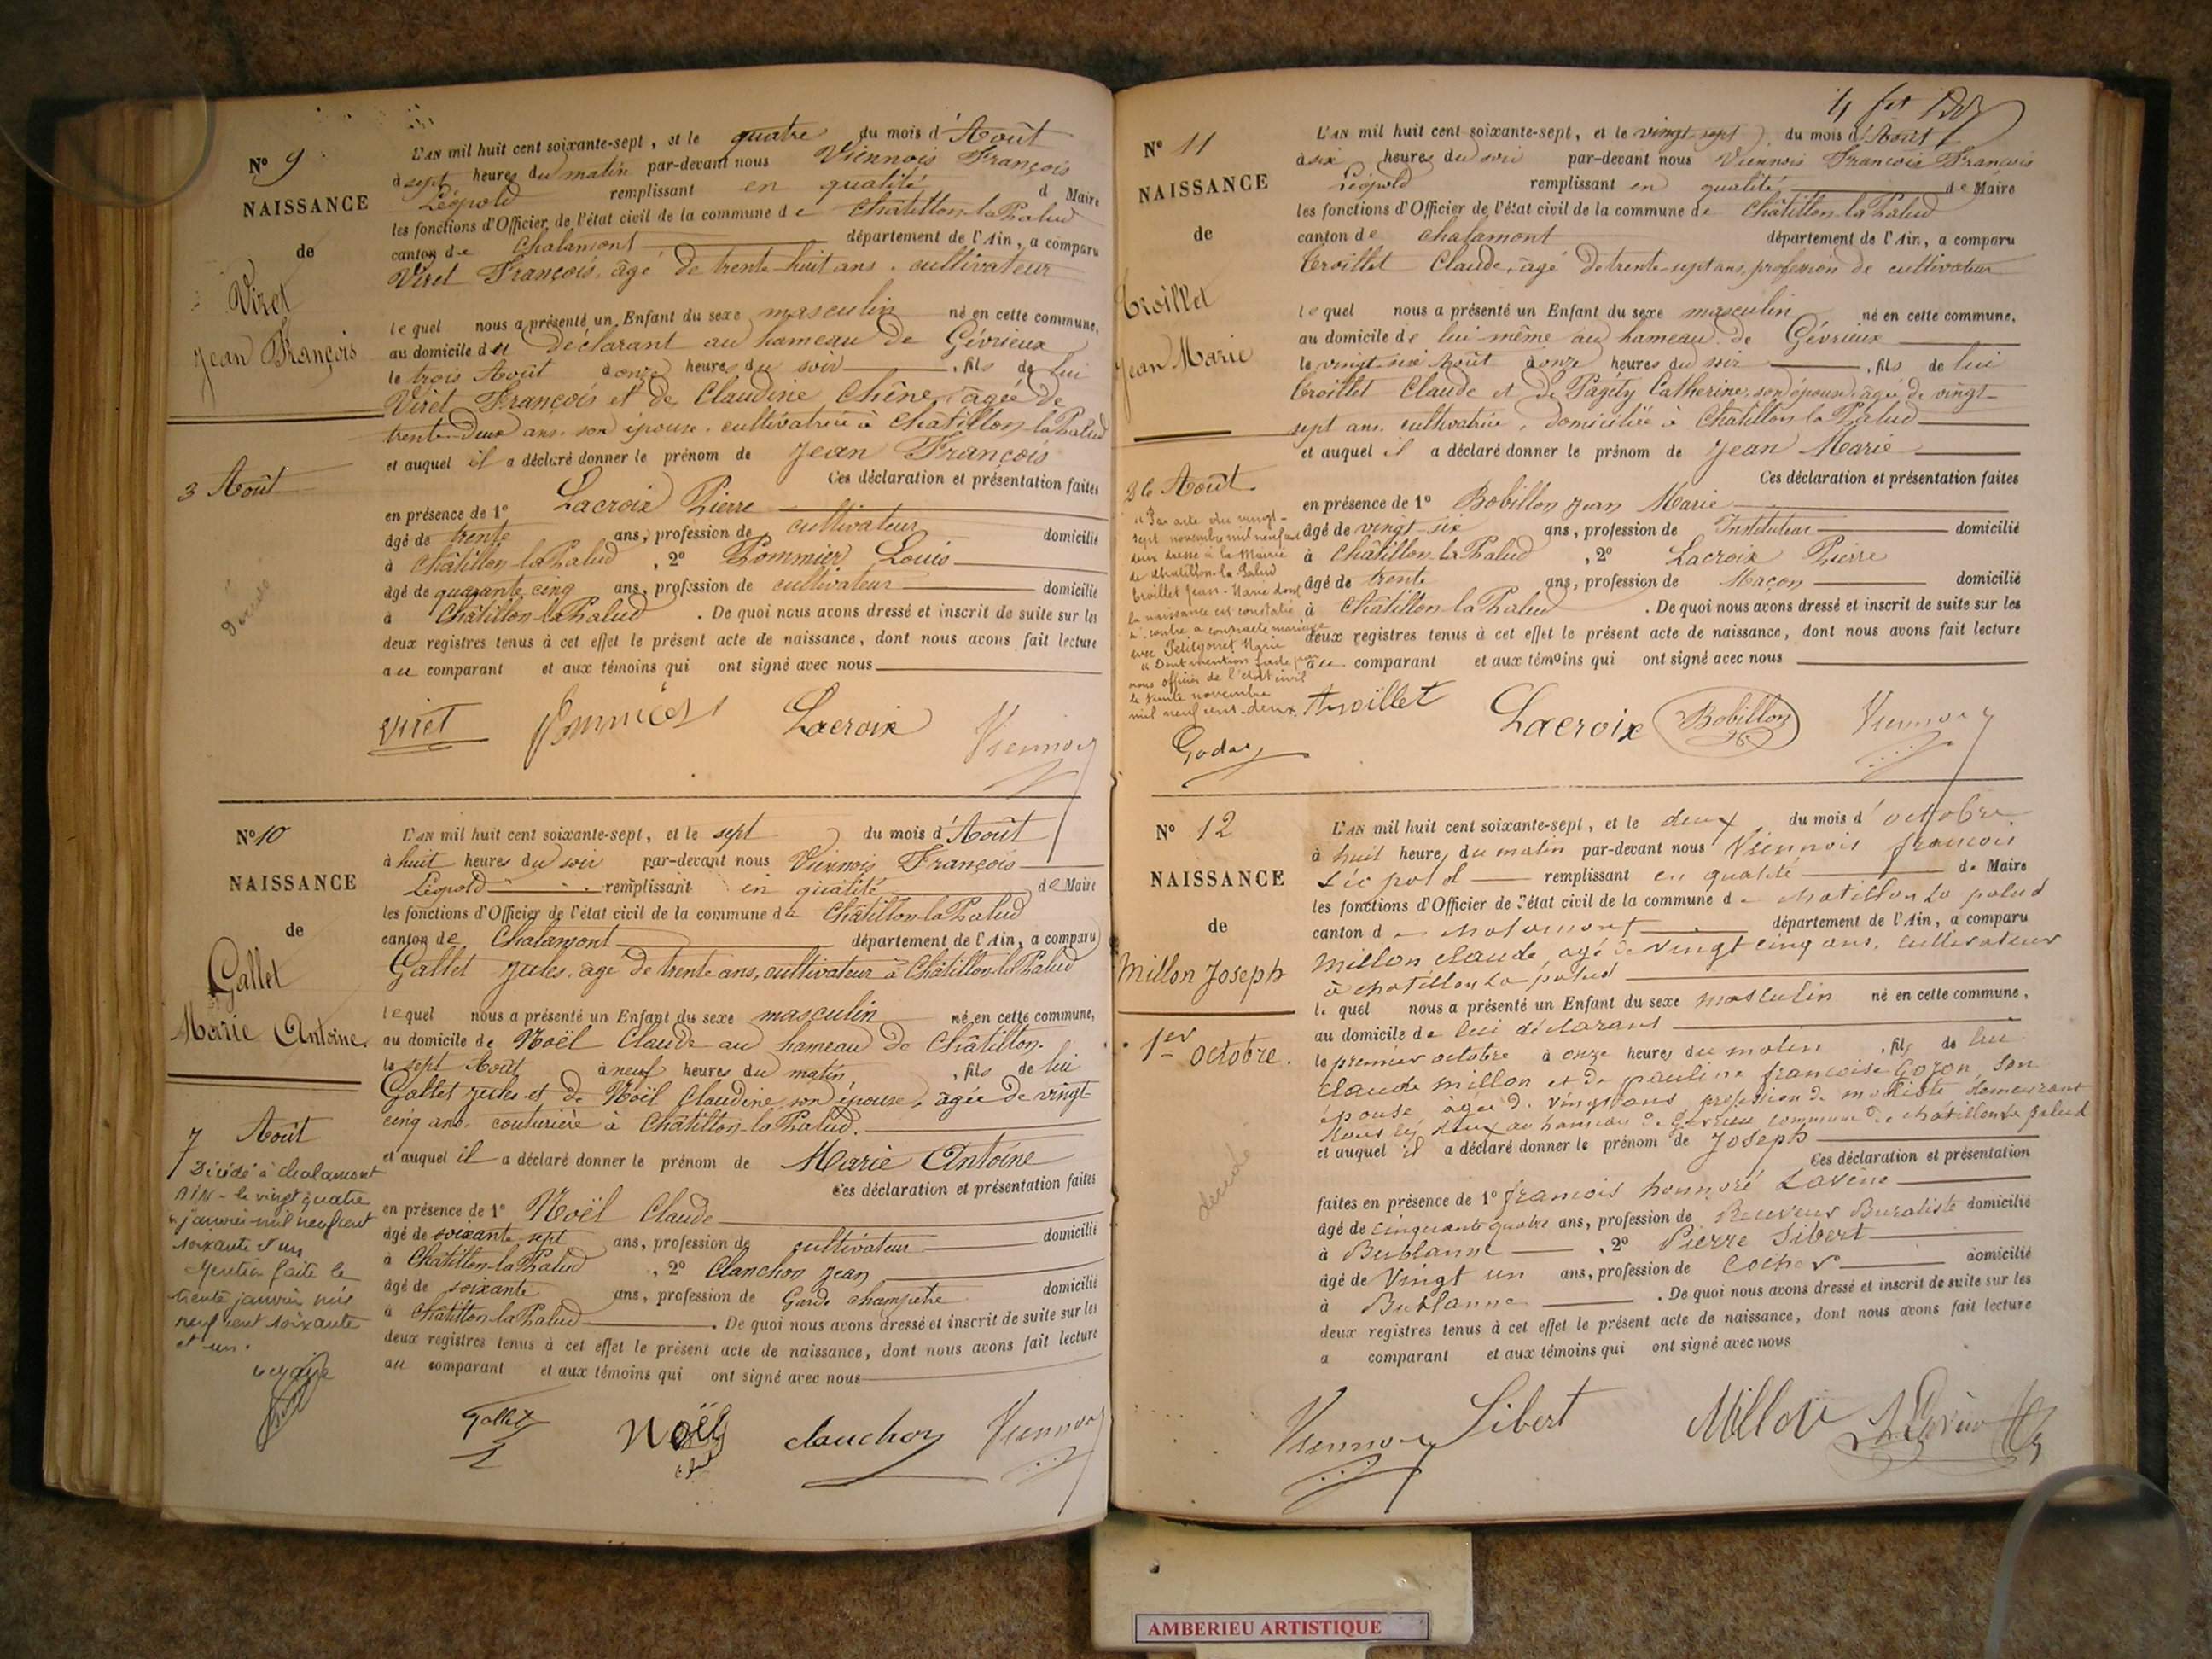 N° 9
NAISSANCE
de
Viret
Jean François
3 Août
L'AN mil huit cent soixante-sept, et le quatre du mois d'Août
à sept heures du matin par-devant nous Viennois François
Léopold remplissant en qualité d Maire
les fonctions d'Officier de l'état civil de la commune de Châtillon-la-Palud
canton de Chalamont département de l'Ain, a comparu
Viret François, âgé de trente-huit ans, cultivateur
lequel nous a présenté un Enfant du sexe masculin né en cette commune,
au domicile du déclarant au hameau de Gévrieux
le trois Août à onze heures du soir, fils de lui
Viret François et de Claudine Chêne, âgée de
trente-deux ans, son épouse, cultivatrice à Châtillon-la-Palud
et auquel il a déclaré donner le prénom de Jean François
Ces déclaration et présentation faites
en présence de 1° Lacroix Pierre
âgé de trente ans, profession de cultivateur domicilié
à Châtillon-la-Palud, 2° Pommier Louis
âgé de quarante cinq ans, profession de cultivateur domicilié
à Châtillon-la-Palud. De quoi nous avons dressé et inscrit de suite sur les
deux registres tenus à cet effet le présent acte de naissance, dont nous avons fait lecture
au comparant et aux témoins qui ont signé avec nous
Viret Pommier Lacroix Viennois
N° 10
NAISSANCE
de
Gallet
Marie Antoine
7 Août
Décédé à Chalamont
AIN - le vingt quatre
janvier mil neuf cent
soixante et un
Mention faite le
trente janvier mil
neuf cent soixante
et un.
L'AN mil huit cent soixante-sept, et le sept du mois d'Août
à huit heures du soir par-devant nous Viennois François
Léopold remplissant en qualité de Maire
les fonctions d'Officier de l'état civil de la commune de Châtillon-la-Palud
canton de Chalamont département de l'Ain, a comparu
Gallet Jules, âgé de trente ans, cultivateur à Châtillon-la-Palud
lequel nous a présenté un Enfant du sexe masculin né en cette commune,
au domicile de Noël Claude au hameau de Châtillon.
le sept Août à neuf heures du matin, fils de lui
Gallet Jules et de Noël Claudine son épouse, âgée de vingt-
cinq ans, couturière à Châtillon-la-Palud.
et auquel il a déclaré donner le prénom de Marie Antoine
Ces déclaration et présentation faites
en présence de 1° Noël Claude
âgé de soixante sept ans, profession de cultivateur domicilié
à Châtillon-la-Palud, 2° Clanchon Jean
âgé de soixante ans, profession de Garde champêtre domicilié
à Châtillon-la-Palud. De quoi nous avons dressé et inscrit de suite sur les
deux registres tenus à cet effet le présent acte de naissance, dont nous avons fait lecture
au comparant et aux témoins qui ont signé avec nous
Gallet Noël Clanchon Viennois
N° 11
NAISSANCE
de
Troillet
Jean Marie
26 Août.
"Par acte du vingt-
sept novembre mil neuf cent
deux dressé à la Mairie
de Chatillon-la-Palud
Troillet Jean-Marie dont
la naissance est constatée
ci-contre, a contracté mariage
avec Petitgonnet Marie
" Dont mention faite par
nous officier de l'état civil
le trente novembre
mil neuf cent-deux.
L'AN mil huit cent soixante-sept, et le vingt-sept du mois d'Août
à six heures du soir par-devant nous Viennois François François
Léopold remplissant en qualité de Maire
les fonctions d'Officier de l'état civil de la commune de Châtillon-la-Palud
canton de Chalamont département de l'Ain, a comparu
Troillet Claude, âgé de trente-sept ans, profession de cultivateur
lequel nous a présenté un Enfant du sexe masculin né en cette commune,
au domicile de lui-même au hameau de Gévrieux
le vingt-six Août à onze heures du soir, fils de lui
Troillet Claude et de Pagéty Catherine, son épouse, âgée de vingt-
sept ans, cultivatrice, domiciliée à Châtillon-la-Palud
et auquel il a déclaré donner le prénom de Jean Marie
Ces déclaration et présentation faites
en présence de 1° Bobillon Jean Marie
âgé de vingt-six ans, profession de Instituteur domicilié
à Châtillon-la-Palud, 2° Lacroix Pierre
âgé de trente ans, profession de Maçon domicilié
à Châtillon-la-Palud. De quoi nous avons dressé et inscrit de suite sur les
deux registres tenus à cet effet le présent acte de naissance, dont nous avons fait lecture
au comparant et aux témoins qui ont signé avec nous
Troillet Lacroix Bobillon Viennois
N° 12
NAISSANCE
de
Millon Joseph
1er Octobre.
décédé
L'AN mil huit cent soixante-sept, et le deux du mois d'octobre
à huit heures du matin par-devant nous Viennois françois
Léopold remplissant en qualité de Maire
les fonctions d'Officier de l'état civil de la commune de chatillon La palud
canton de chalamont département de l'Ain, a comparu
Millon claude, agé de vingt cinq ans, cultivateur
à chatillon La palud
lequel nous a présenté un Enfant du sexe masculin né en cette commune,
au domicile de lui déclarant
le premier octobre à onze heures du matin, fils de lui
claude Millon et de pauline francoise Gozon son
épouse, agée de vingt ans, profession de modiste demeurant
tous les deux au hameau de Gevrieu commune de chatillon La palud
et auquel il a déclaré donner le prénom de Joseph
Ces déclaration et présentation
faites en présence de 1° francois honnoré Lavene
âgé de cinquante quatre ans, profession de Receveur Buraliste domicilié
à Bublanne, 2° Pierre Sibert
âgé de vingt un ans, profession de cocher domicilié
à Bublanne. De quoi nous avons dressé et inscrit de suite sur les
deux registres tenus à cet effet le présent acte de naissance, dont nous avons fait lecture
a comparant et aux témoins qui ont signé avec nous
Viennois Sibert Millon
AMBERIEU ARTISTIQUE